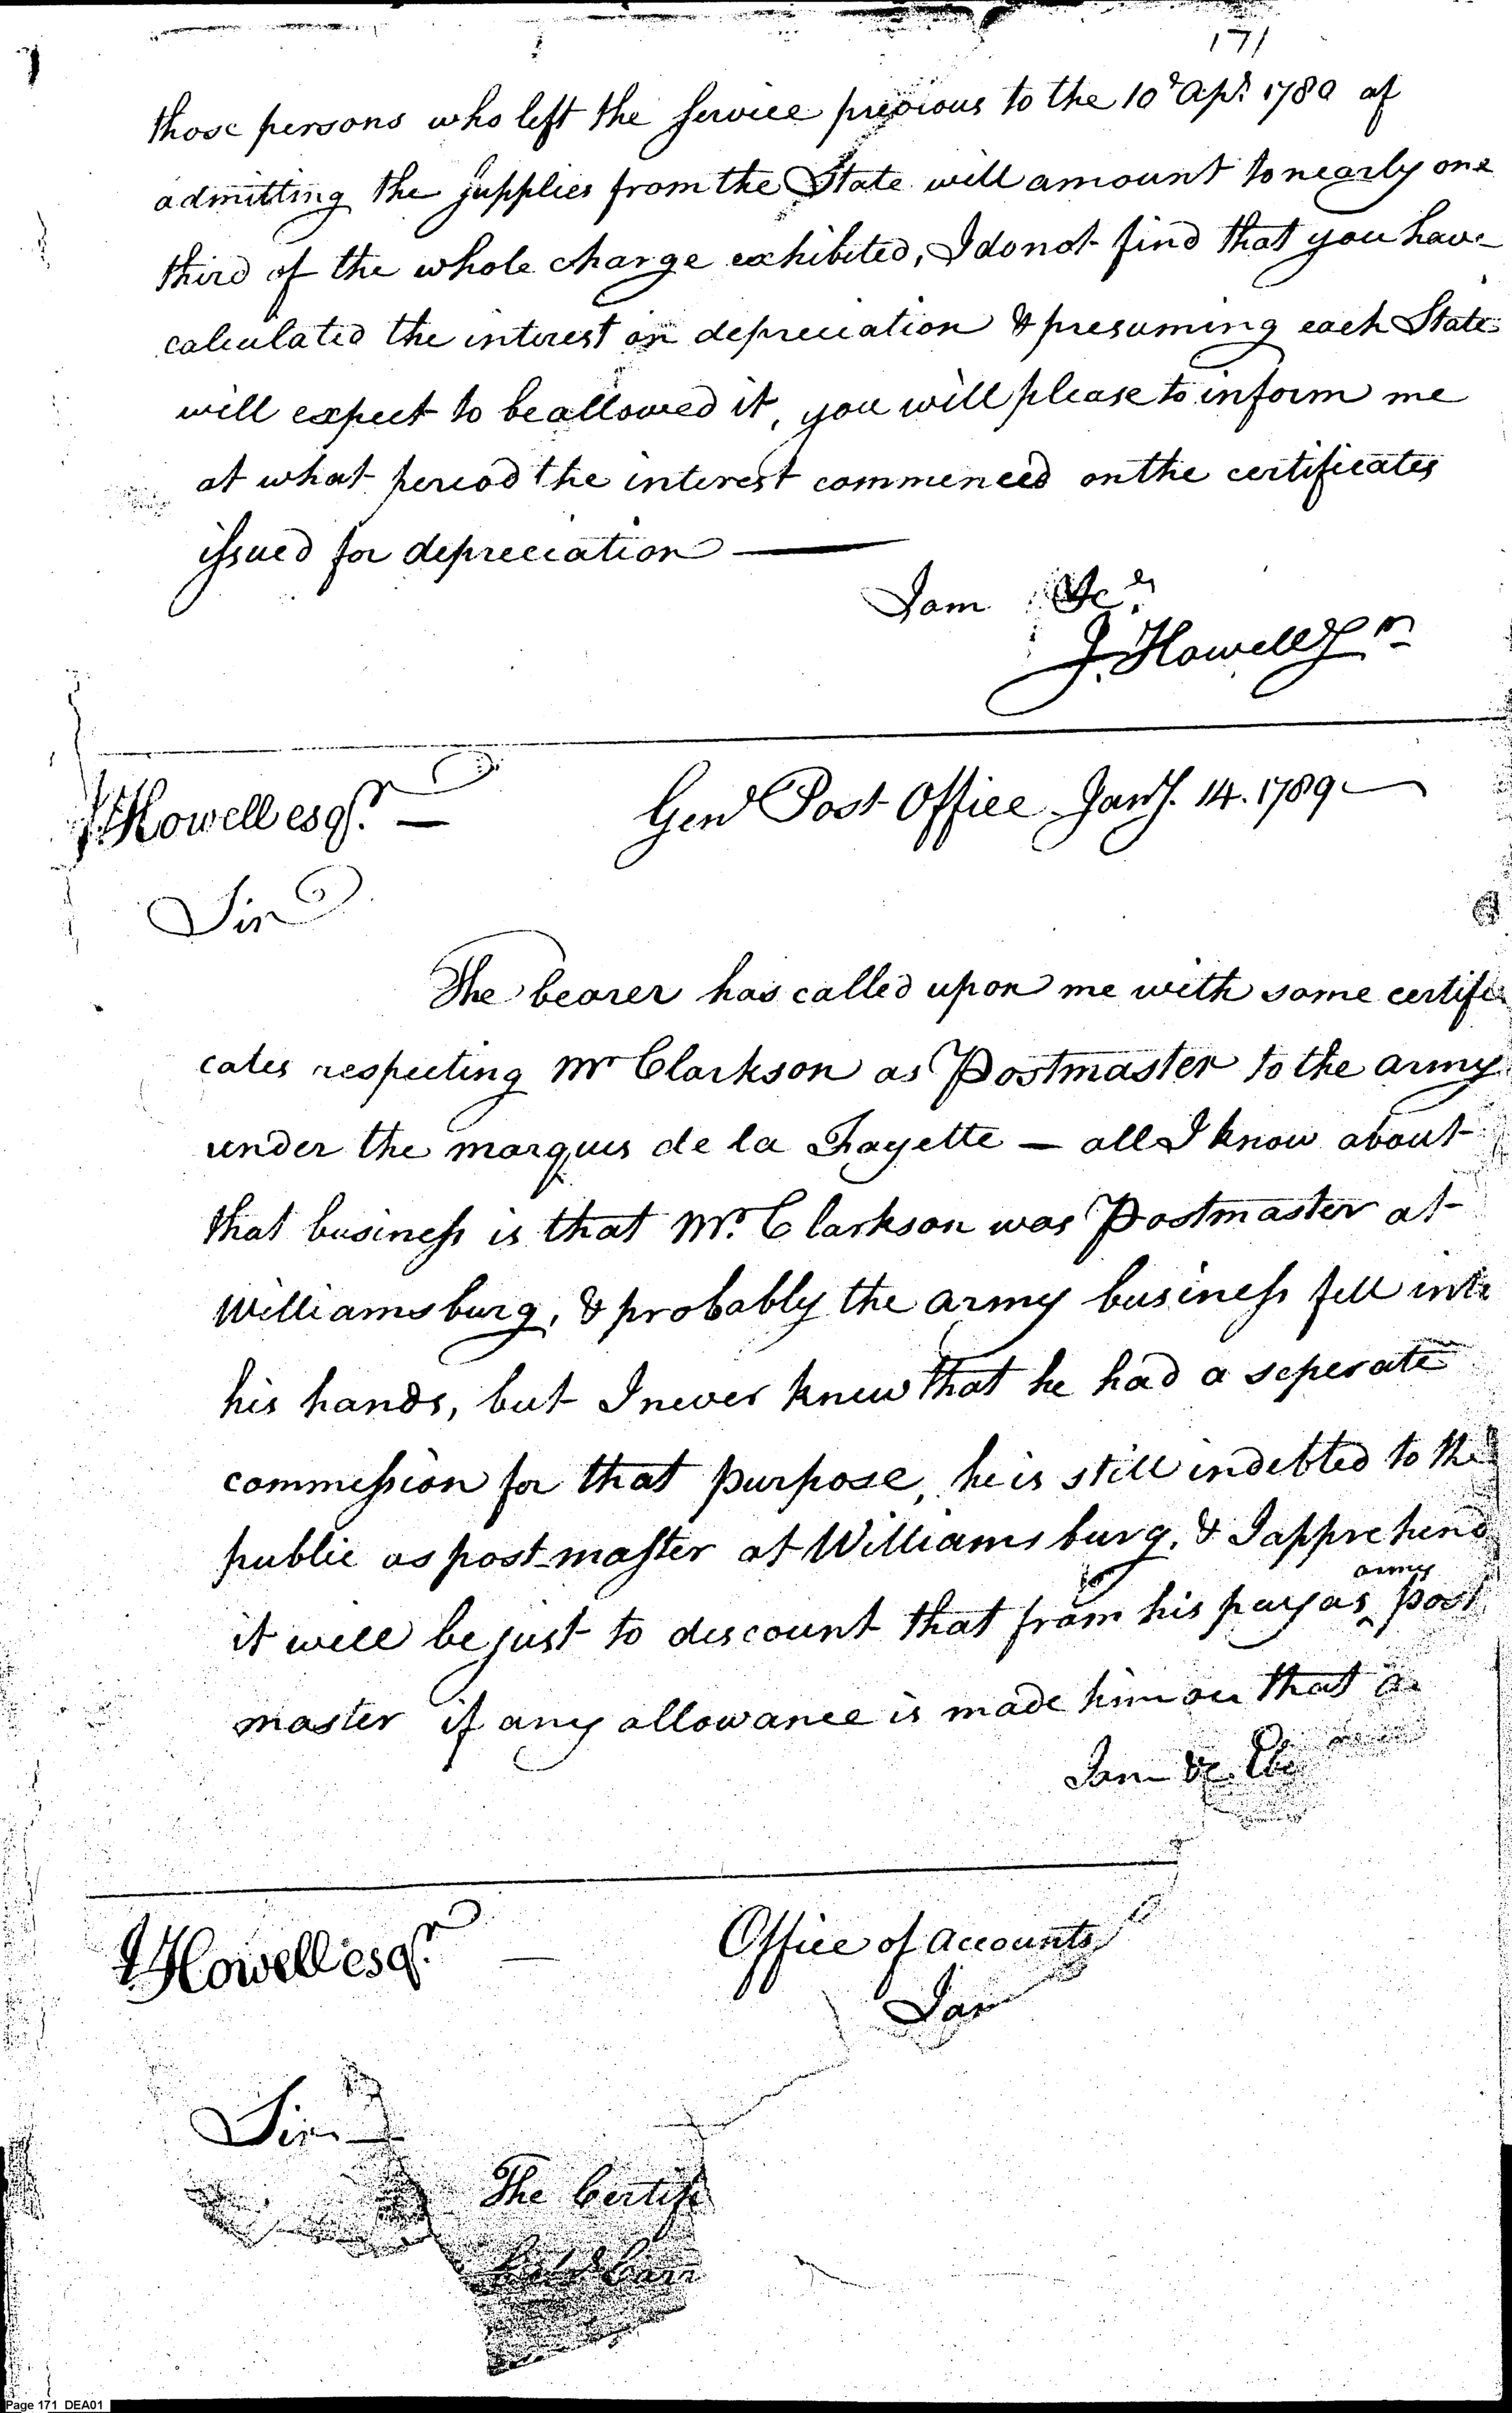 171
those persons who left the service previous to the 10th Apl. 1780 af
admitting the supplies from the State will amount to nearly one
third of the whole charge exhibited, I do not find that you have
calculated the interest on depreciation & presuming each State
will expect to be allowed it, you will please to inform me
at what period the interest commenced on the certificates
issued for depreciation —
I am &c.
J. Howell Jr
J Howell esqr. —
Genl Post Office Jany. 14. 1789
Sir
The bearer has called upon me with some certifi
cates respecting Mr Clarkson as Postmaster to the army
under the marquis de la Fayette — all I know about
that business is that Mr. Clarkson was Postmaster at
Williamsburg, & probably the army business fell into
his hands, but I never knew that he had a seperate
commission for that purpose, he is still indebted to the
public as post-master at Williamsburg, & I apprehend
it will be just to discount that from his pay as army post
master if any allowance is made him on that a
I am &c. Ebe
J Howell esqr. —
Office of Accounts
Jan
Sir
The Certifi